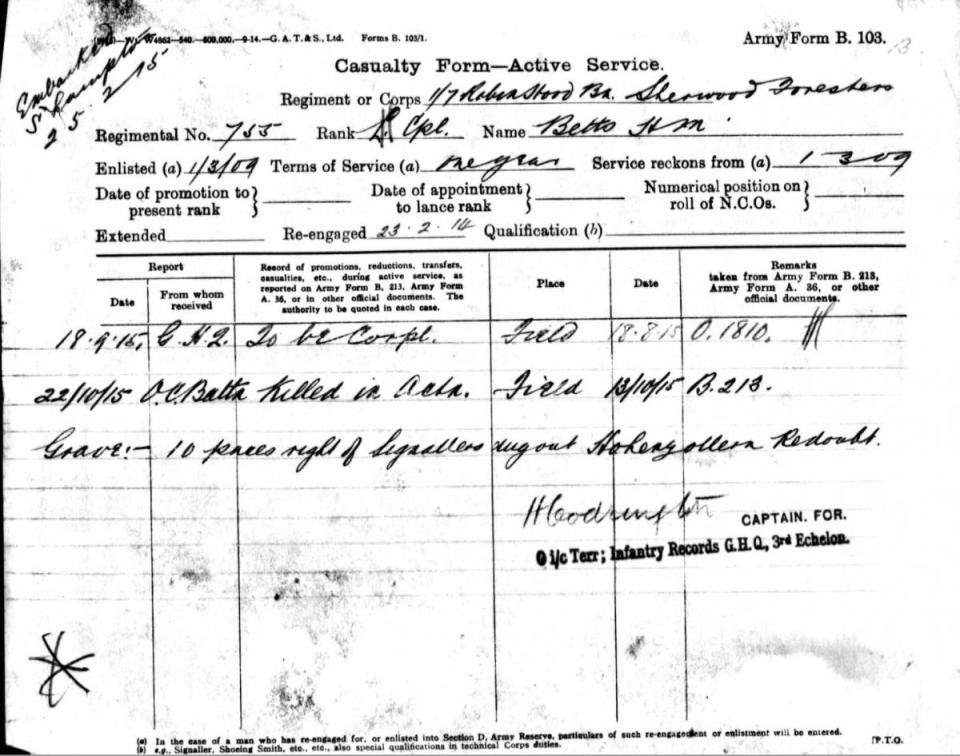 W4862—540.—500,000.—9-14.—G. A. T. & S., Ltd. Forms B. 103/1.
Army Form B. 103.
Embarked
S'hampton
25.2.15
Casualty Form—Active Service.
Regiment or Corps 1/7 Robin Hood Bn. Sherwood Foresters
Regimental No. 755 Rank L/Cpl. Name Betts H M
Enlisted (a) 1/3/09 Terms of Service (a) one year Service reckons from (a) 1-3-09
Date of promotion to present rank } Date of appointment to lance rank } Numerical position on roll of N.C.Os. }
Extended Re-engaged 23.2.14 Qualification (b)
Report
Date
From whom received
Record of promotions, reductions, transfers, casualties, etc., during active service, as reported on Army Form B. 213, Army Form A. 36, or in other official documents. The authority to be quoted in each case.
Place
Date
Remarks
taken from Army Form B. 213, Army Form A. 36, or other official documents.
18.9.15. G.H.Q. To be Corpl. Field 18.8.15 O.1810.
22/10/15 O.C. Battn Killed in Actn. Field 13/10/15 B.213.
Grave:- 10 paces right of Signallers dug out Hohenzollern Redoubt.
H Codrington
CAPTAIN. FOR.
O i/c Terr; Infantry Records G.H.Q., 3rd Echelon.
(a) In the case of a man who has re-engaged for, or enlisted into Section D, Army Reserve, particulars of such re-engagement or enlistment will be entered.
(b) e.g., Signaller, Shoeing Smith, etc., etc., also special qualifications in technical Corps duties.
[P.T.O.